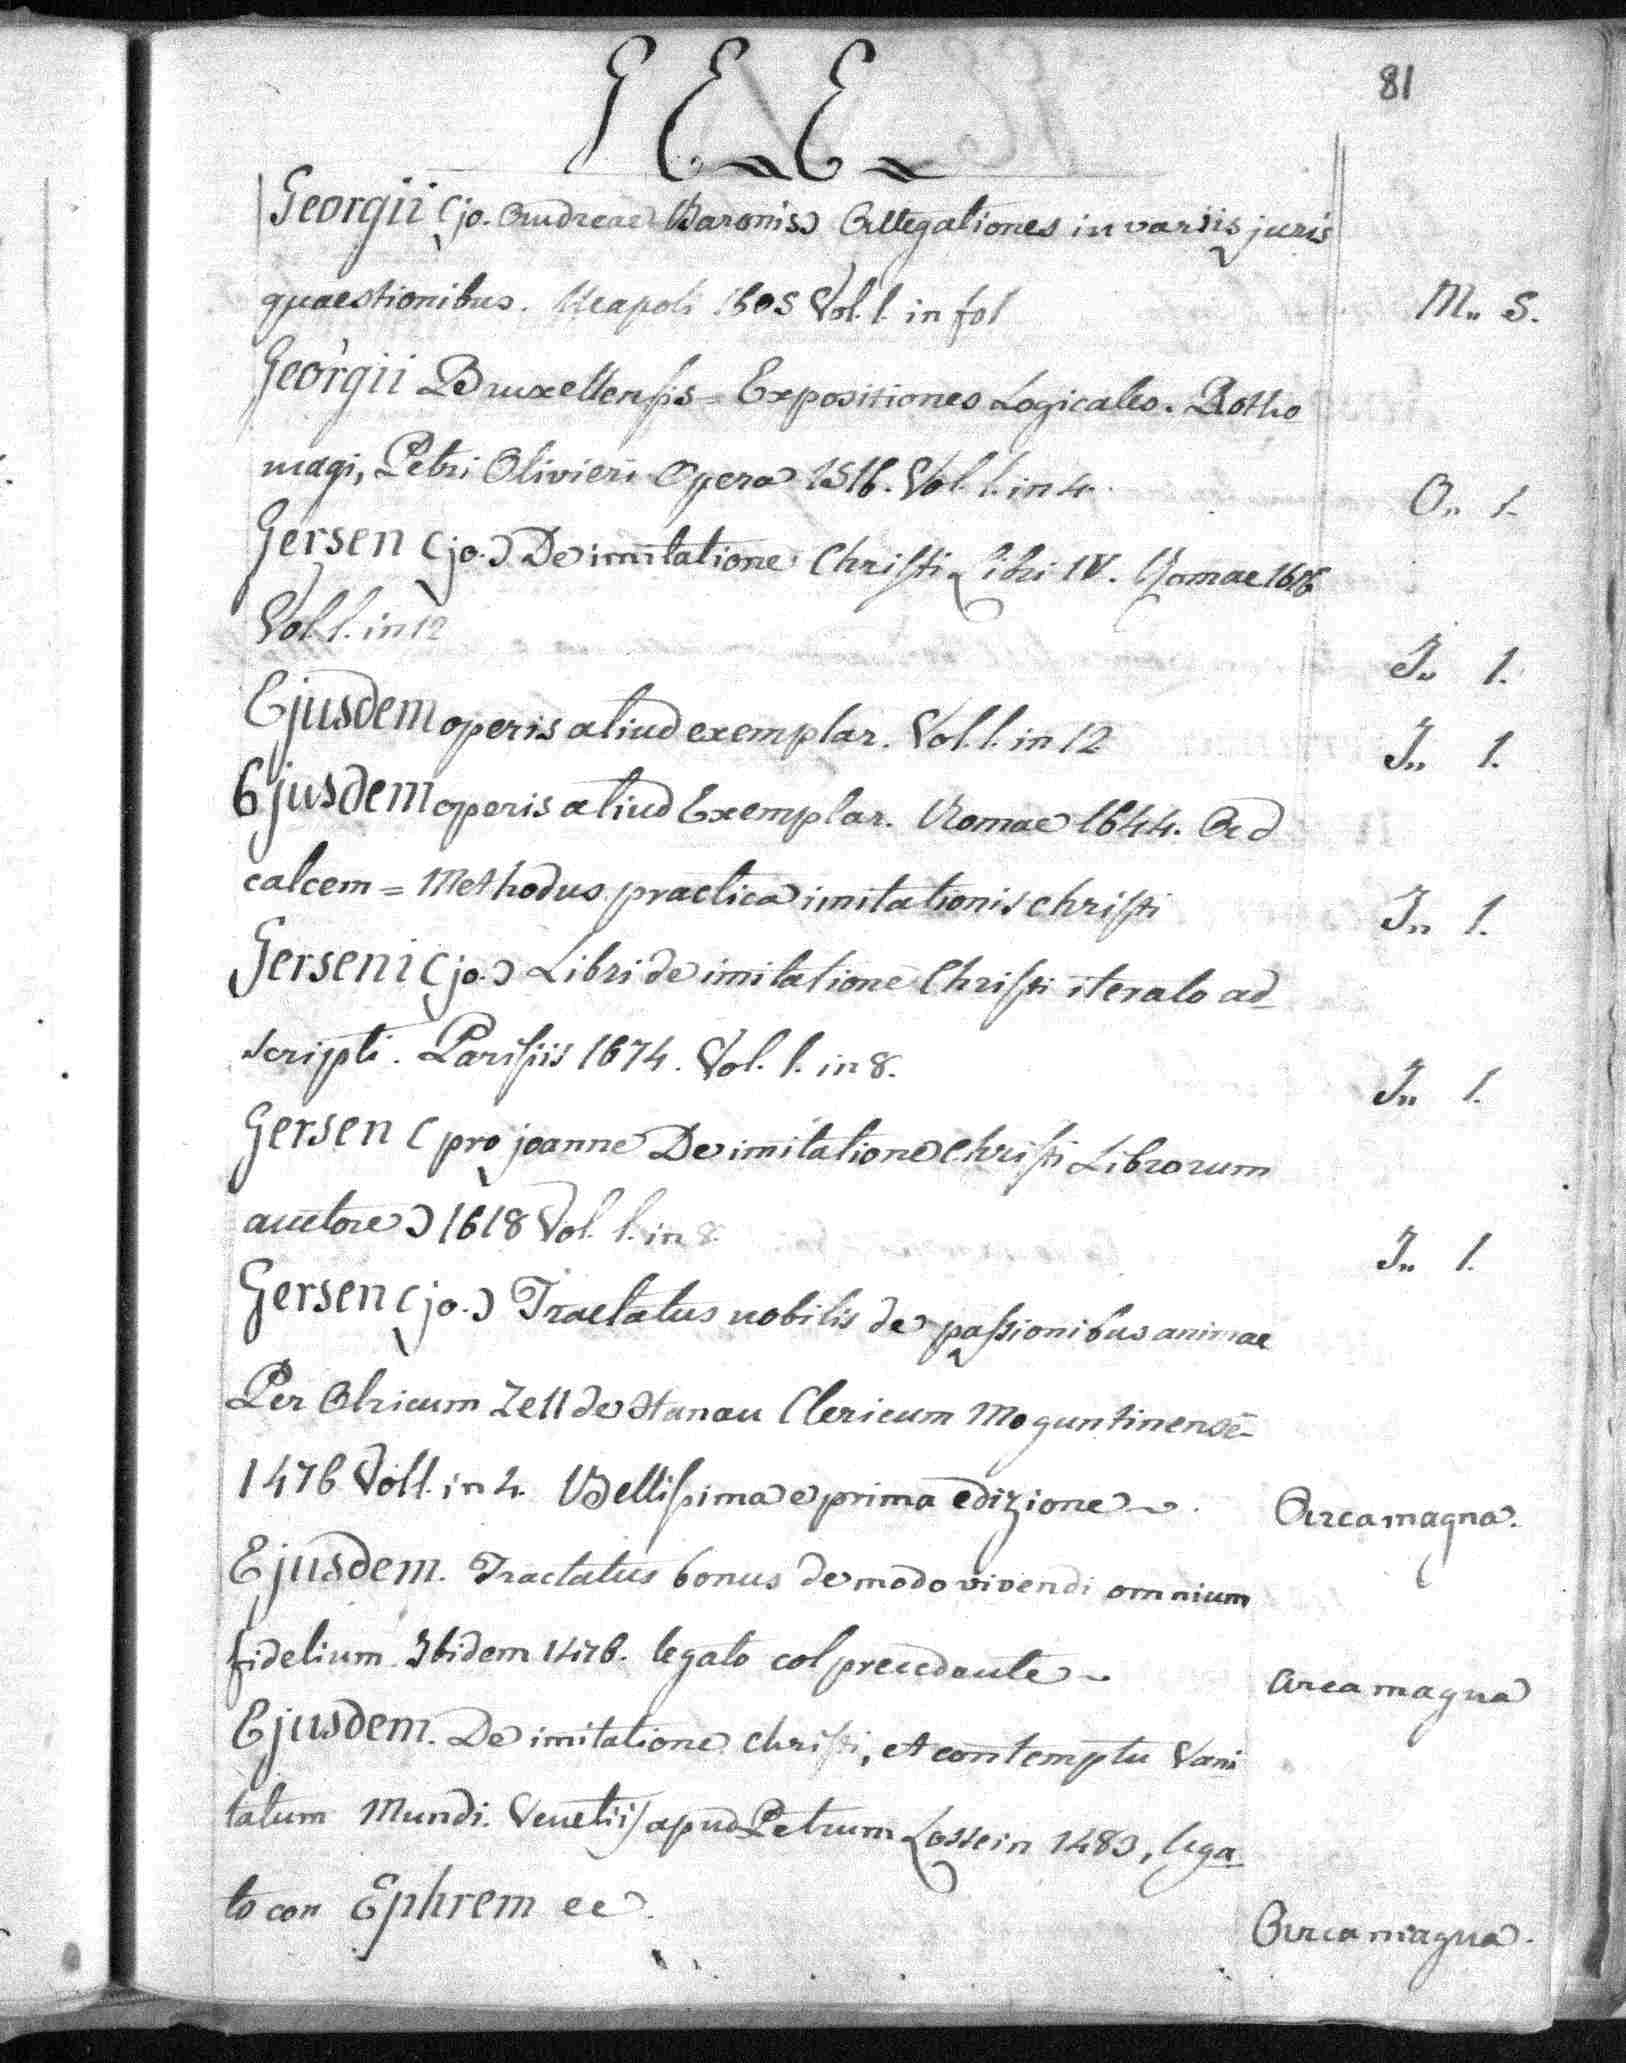 81
G E E
Georgii (jo. Andreae Baronis) Allegationes in variis juris
quaestionibus. Neapoli 1605 Vol. 1. in fol M,, 5.
Georgii Bruxellensis = Expositiones Logicales. Rotho
magi, Petri Olivieri Opera 1516. Vol. 1. in 4. O,, 1.
Gersen (jo.) De imitatione Christi Libri IV. Romae
Vol. 1. in 12 I,, 1.
Ejusdem operis aliud exemplar. Vol. 1. in 12 I,, 1.
Ejusdem operis aliud Exemplar. Romae 1644. Ad
calcem = Methodus practica imitationis christi I,, 1.
Gerseni (jo.) Libri de imitatione Christi iterato ad
scripti. Parisiis 1674. Vol. 1. in 8. I,, 1.
Gersen (pro joanne De imitatione Christi Librorum
auctore) 1618 Vol. 1. in 8. I,, 1.
Gersen (jo.) Tractatus nobilis de passionibus animae
Per Olricum Zell de Hanau Clericum Moguntinensē
1476 Vol 1. in 4. Bellissima e prima edizione Arca magna.
Ejusdem. Tractatus bonus de modo vivendi omnium
fidelium Ibidem 1476. legato col precedente Arca magna
Ejusdem. De imitatione Christi, et contemptu Vani
tatum Mundi. Venetiis apud Petrum Lossein 1483, lega
to con Ephrem ec. Arca magna.